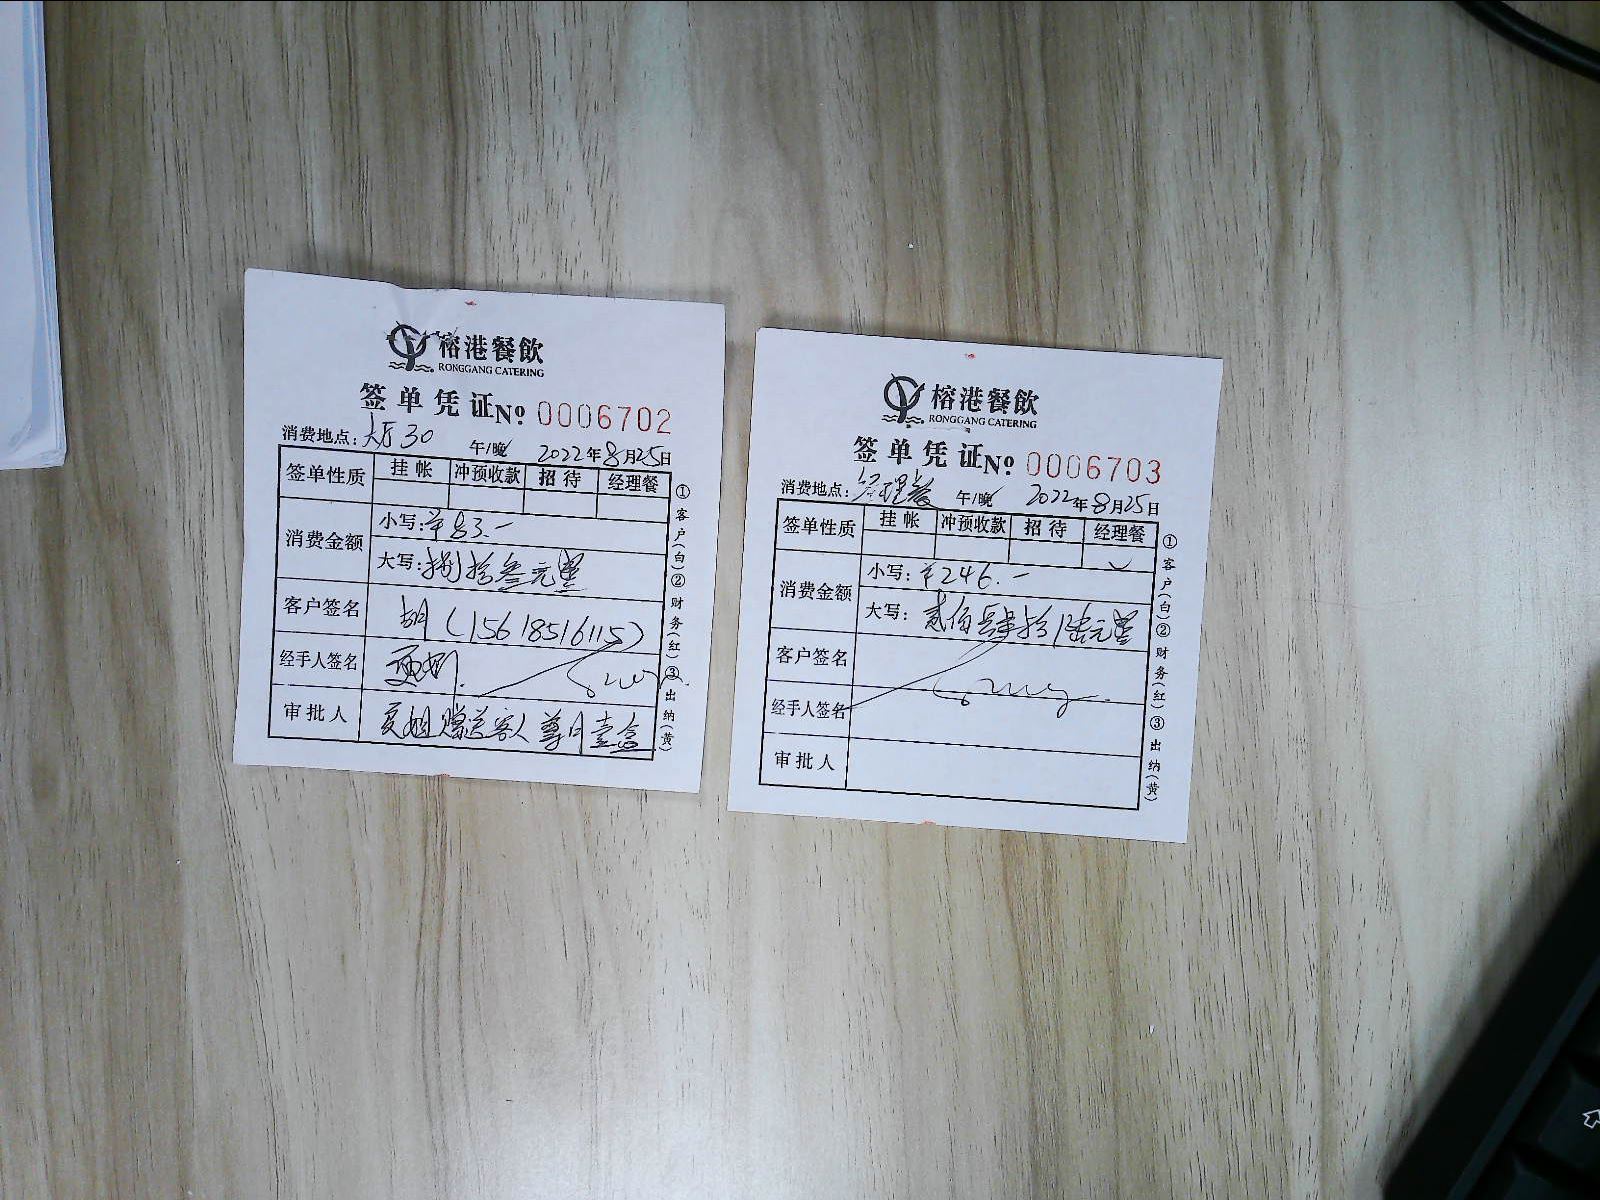 榕港餐飲
RONGGANG CATERING
签单凭证 No. 0006702
消费地点: 大厅30 午/晚 2022年8月25日
签单性质 挂帐 冲预收款 招待 经理餐
消费金额 小写: ¥83.一
大写: 捌拾叁元整
客户签名 胡 (15618516115)
经手人签名
审批人 夏姐赠送客人 壹盒
①客户(白)②财务(红)③出纳(黄)
榕港餐飲
RONGGANG CATERING
签单凭证 No. 0006703
消费地点: 经理餐 午/晚 2022年8月25日
签单性质 挂帐 冲预收款 招待 经理餐
消费金额 小写: ¥246.一
大写: 贰佰肆拾陆元整
客户签名
经手人签名
审批人
①客户(白)②财务(红)③出纳(黄)